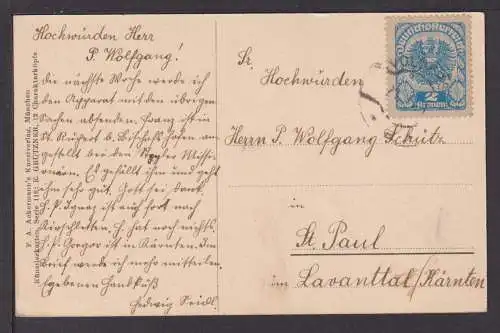 Hochwürden Herr
P. Wolfgang!
die nächste Woche werde ich
den Apparat mit den übrigen
Sachen absenden. Franz ist in
St. Rupert b. Bischofshofen an-
gestellt bei den Missi-
onären. Es gefällt ihm und geht
ihm sehr gut. Gott sei dank.
H. P. Ignaz ist auch fort nach
Kirschletten, H. hat noch nichts.
H. P. Gregor ist in Kärnten. Im
Brief werde ich mehr mitteilen
Ergebenen Handkuß
Hedwig Seidl.
F. A. Ackermann's Kunstverlag, München.
Künstlerkarten, Serie 118: E. GRÜTZNER, 12 Charakterköpfe
Sr.
Hochwürden
Herrn P. Wolfgang Schütz
in
St. Paul
im Lavanttal/Kärnten
Deutschösterreich
2
Kronen